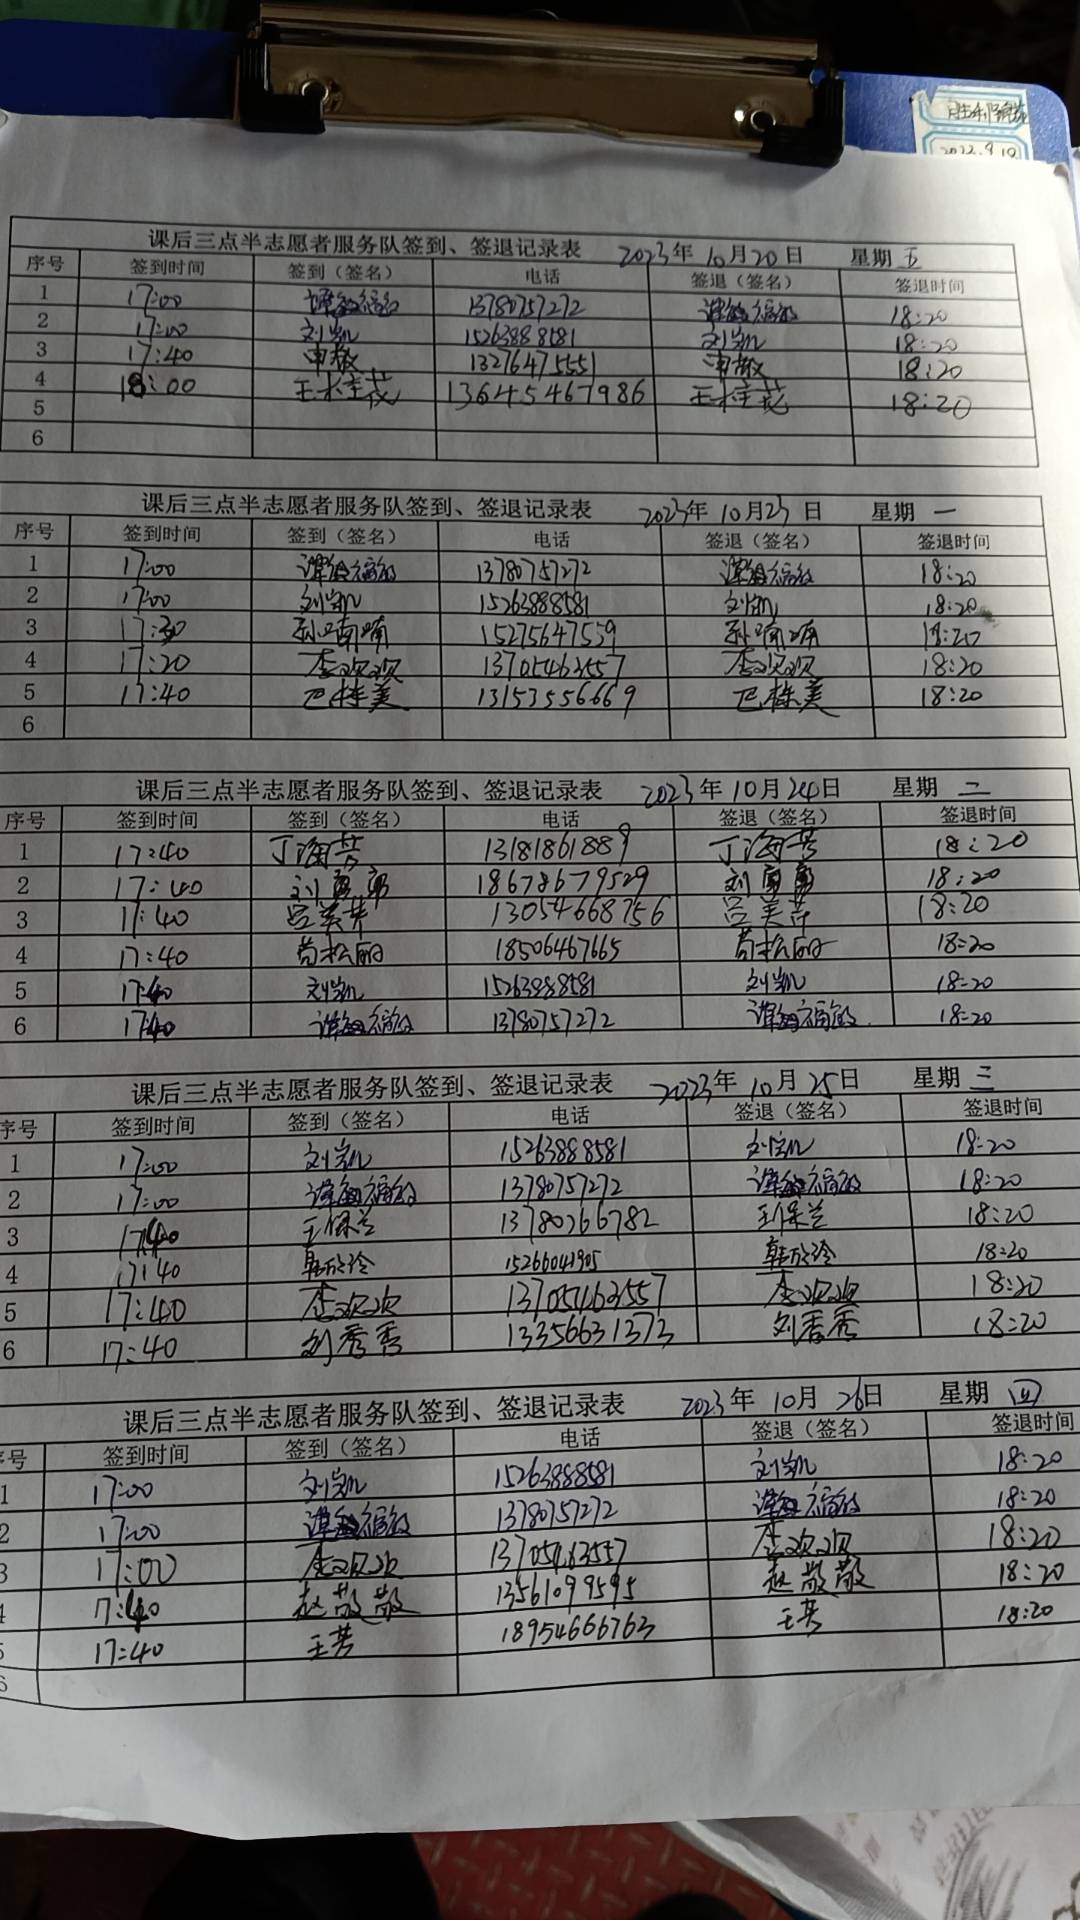 2022.9.19
课后三点半志愿者服务队签到、签退记录表 2023年10月20日 星期五
序号 签到时间 签到（签名） 电话 签退（签名） 签退时间
1 17:00 13780757272 18:20
2 17:00 刘凯 15263888581 刘凯 18:20
3 17:40 申敬 13276475551 申敬 18:20
4 18:00 王桂花 13645467986 王桂花 18:20
5
6
课后三点半志愿者服务队签到、签退记录表 2023年10月23日 星期一
序号 签到时间 签到（签名） 电话 签退（签名） 签退时间
1 17:00 13780757272 18:20
2 17:00 刘凯 15263888581 刘凯 18:20
3 17:30 孙喃喃 15275647559 孙喃喃 18:20
4 17:20 李欢欢 13705463557 李欢欢 18:20
5 17:40 巴栋美 13153556669 巴栋美 18:20
6
课后三点半志愿者服务队签到、签退记录表 2023年10月24日 星期二
序号 签到时间 签到（签名） 电话 签退（签名） 签退时间
1 17:40 丁海芳 13181861889 丁海芳 18:20
2 17:40 刘 18678679529 刘 18:20
3 17:40 吕美芹 13054668756 吕美芹 18:20
4 17:40 苟松丽 18506467665 苟松丽 18:20
5 17:40 刘凯 15263888581 刘凯 18:20
6 17:40 13780757272 18:20
课后三点半志愿者服务队签到、签退记录表 2023年10月25日 星期三
序号 签到时间 签到（签名） 电话 签退（签名） 签退时间
1 17:00 刘凯 15263888581 刘凯 18:20
2 17:00 13780757272 18:20
3 17:40 王保兰 13780766782 王保兰 18:20
4 17:40 韩欣泠 15266041905 韩欣泠 18:20
5 17:40 李欢欢 13705463557 李欢欢 18:20
6 17:40 刘秀秀 13356631373 刘秀秀 18:20
课后三点半志愿者服务队签到、签退记录表 2023年10月26日 星期四
号 签到时间 签到（签名） 电话 签退（签名） 签退时间
1 17:00 刘凯 15263888581 刘凯 18:20
2 17:00 13780757272 18:20
3 17:00 李欢欢 13705463557 李欢欢 18:20
4 17:40 赵敬敬 13561099595 赵敬敬 18:20
5 17:40 王芳 18954666763 王芳 18:20
6